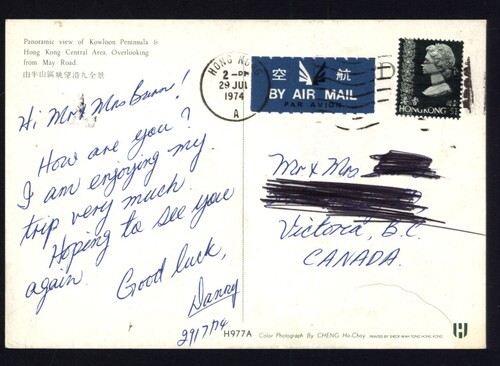 Panoramic view of Kowloon Peninsula &
Hong Kong Central Area, Overlooking
from May Road.
由半山區眺望港九全景
Hi Mr & Mrs
How are you?
I am enjoying my
trip very much
Hoping to see you
again.
Good luck,
Danny
29/7/74
HONG KONG
2 - PM
29 JUL
1974
A
空 航
BY AIR MAIL
PAR AVION
香港
HONG KONG
Mr & Mrs
Victoria, B.C.
CANADA.
H977A
Color Photograph By CHENG Ho-Choy